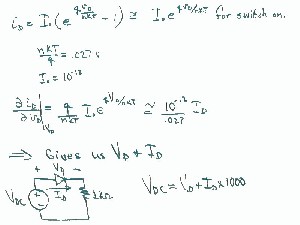 i_D = I_o (e^{qV_D/nKT} - 1) ≅ I_o e^{qV_D/nKT} for switch on.
nKT/q = .027 V
I_o = 10^{-12}
∂i_D/∂v_D |_{V_D} = q/nKT I_o e^{qV_D/nKT} ≅ 10^{-12}/.027 I_D
⇒ Gives us V_D + I_D
+ V_D -
V_DC + - I_D 1kΩ
V_DC = V_D + I_D x 1000